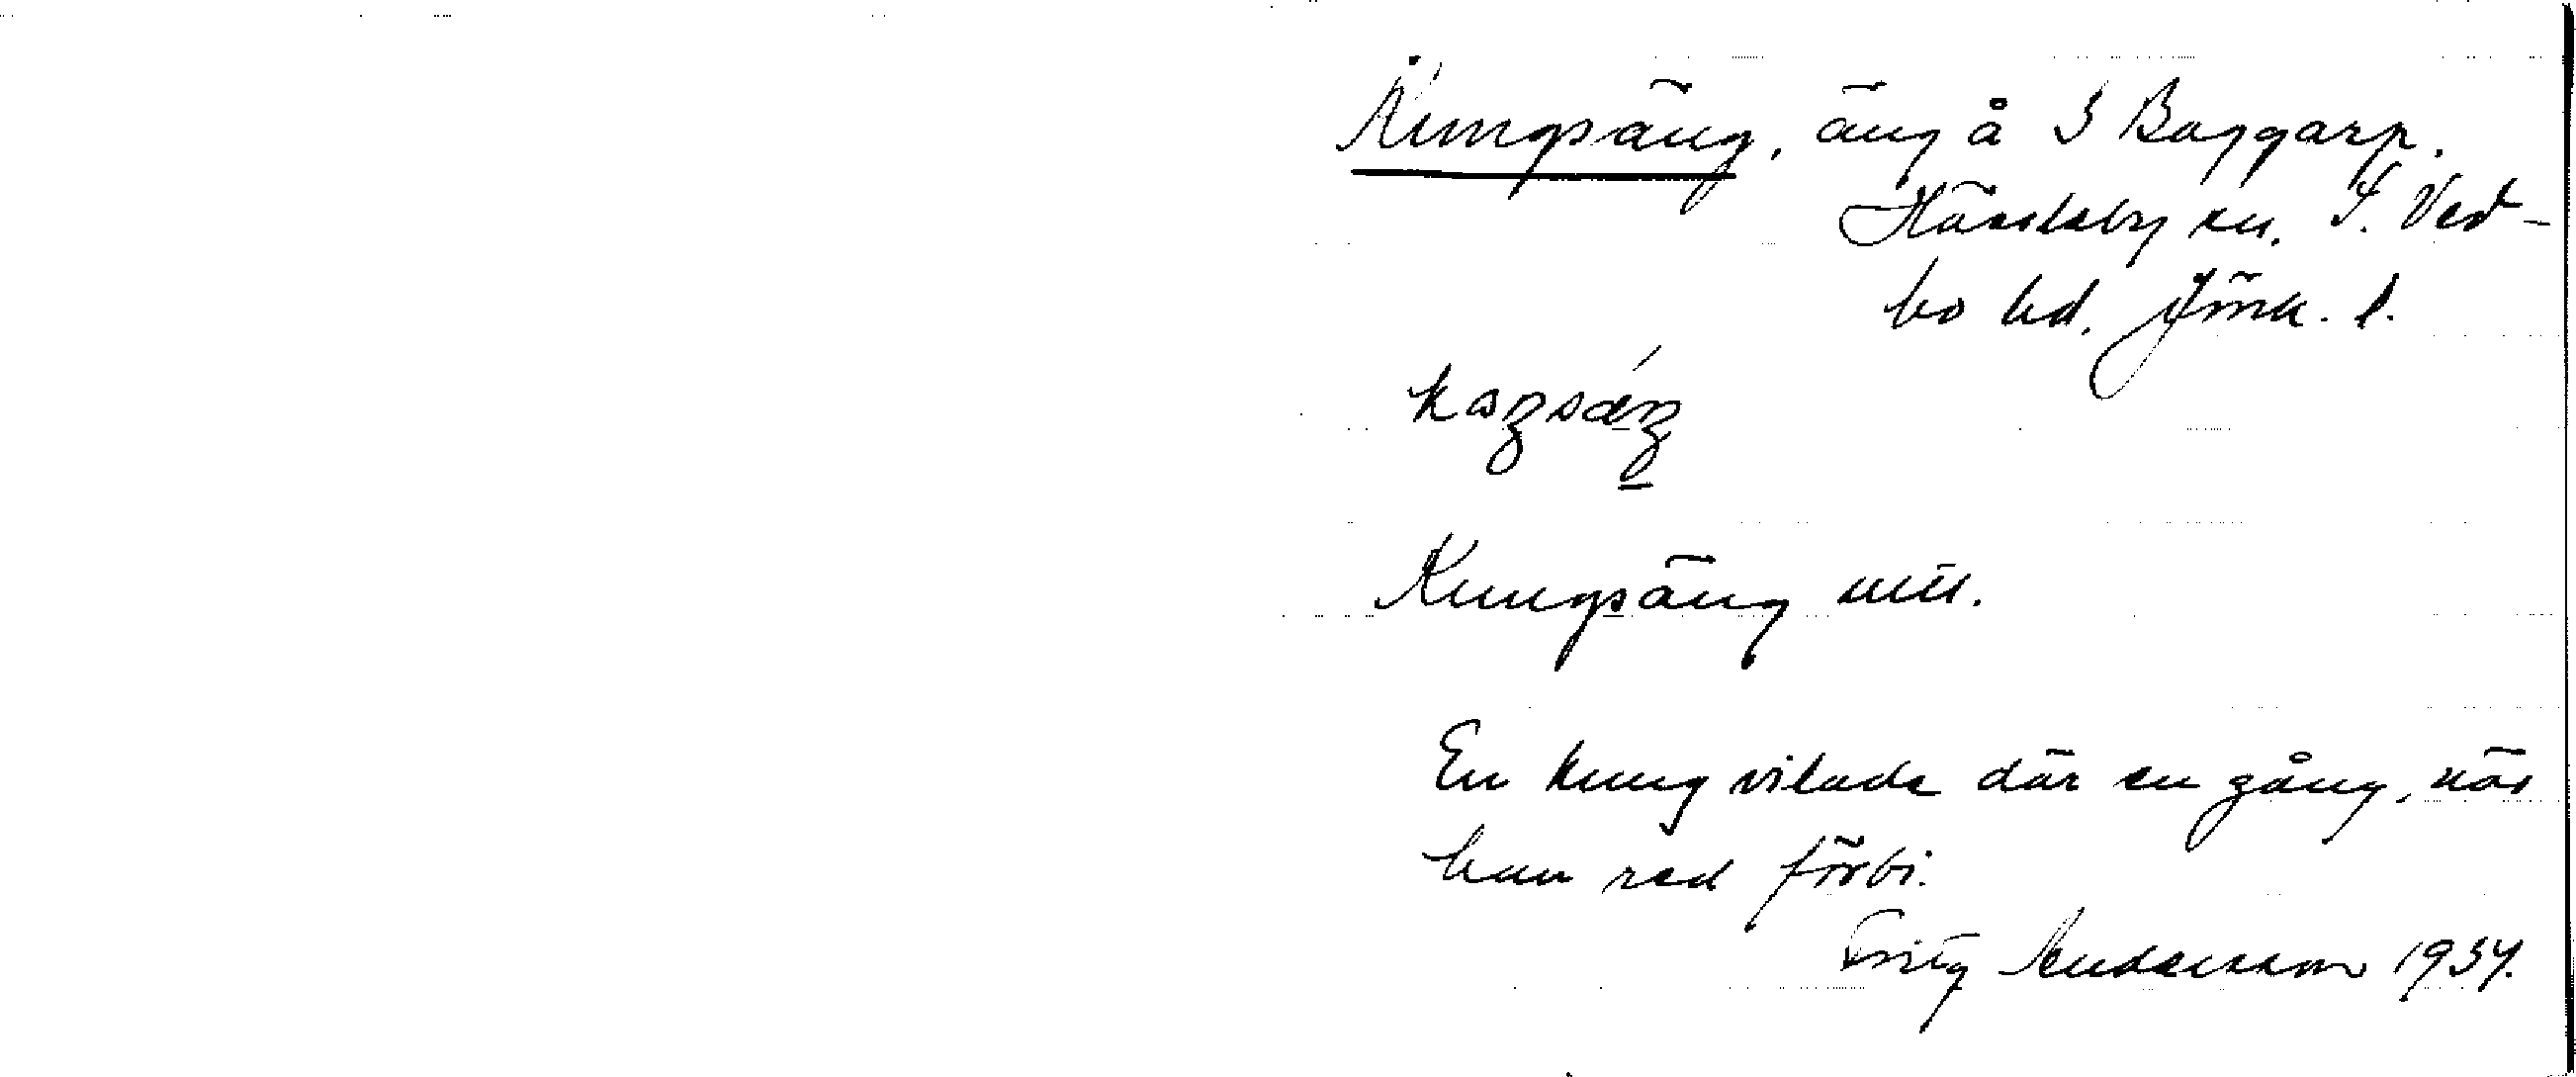 Kungsäng, äng å S Baggarp.
Hässleby sn. S. Ved-
bo hd. Jönk. l.
kaŋsǽŋ
Kungsäng utt.
En kung vilade där en gång, när
han red förbi.
Fritz Andersson 1934.